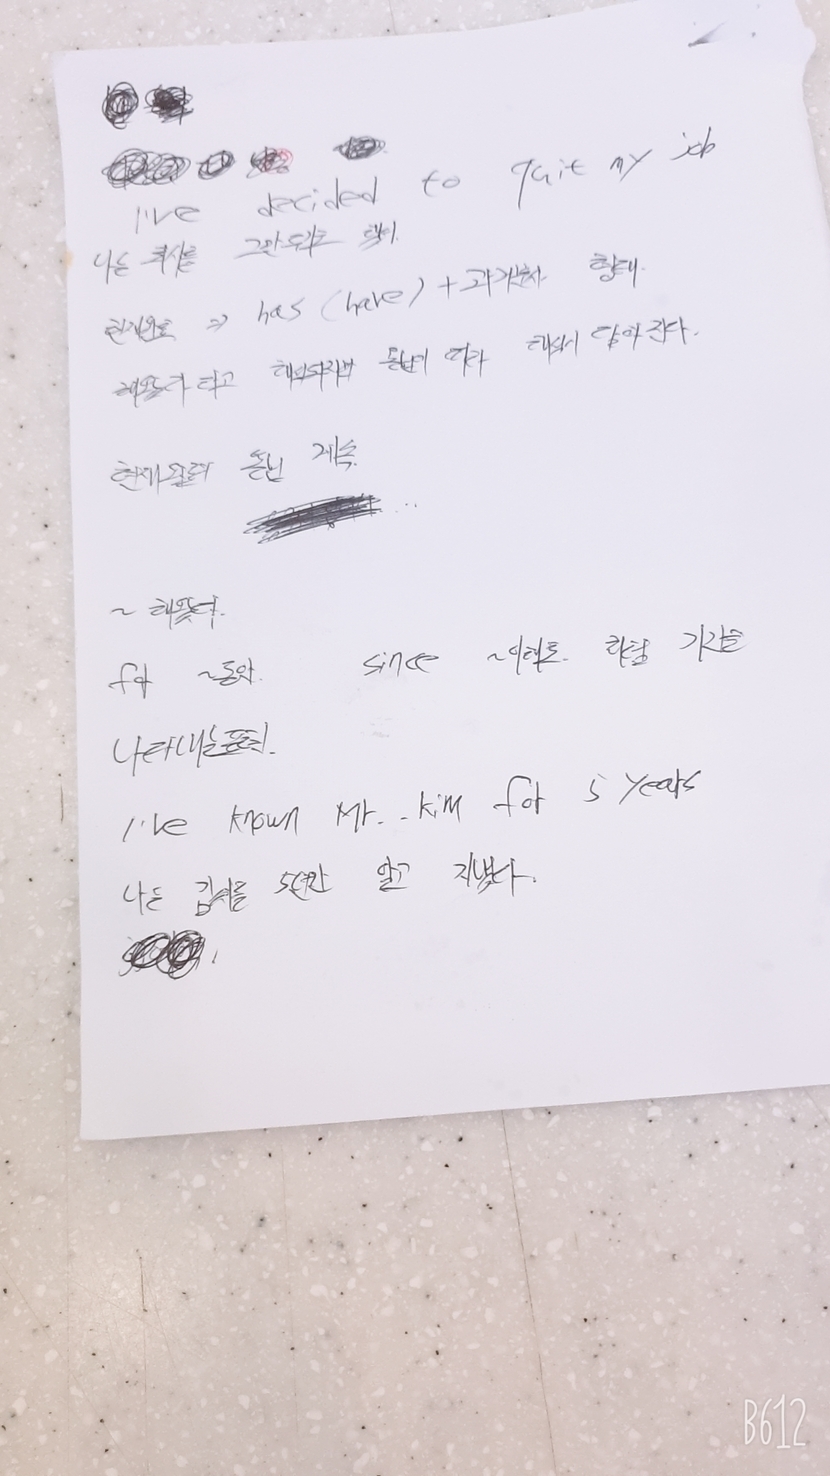 I've decided to quit my job
나는 회사를 그만두기로 했어.
현재완료 => has (have) + 과거분사 형태.
해왔다 라고 해석하지만 해석이 달라진다.
현재완료 용법 계속
~ 해왔다.
for ~동안. since ~이래로. 기간을
나타내는표현.
I've known Mr. Kim for 5 years
나는 김씨를 5년간 알고 지냈다.
B612